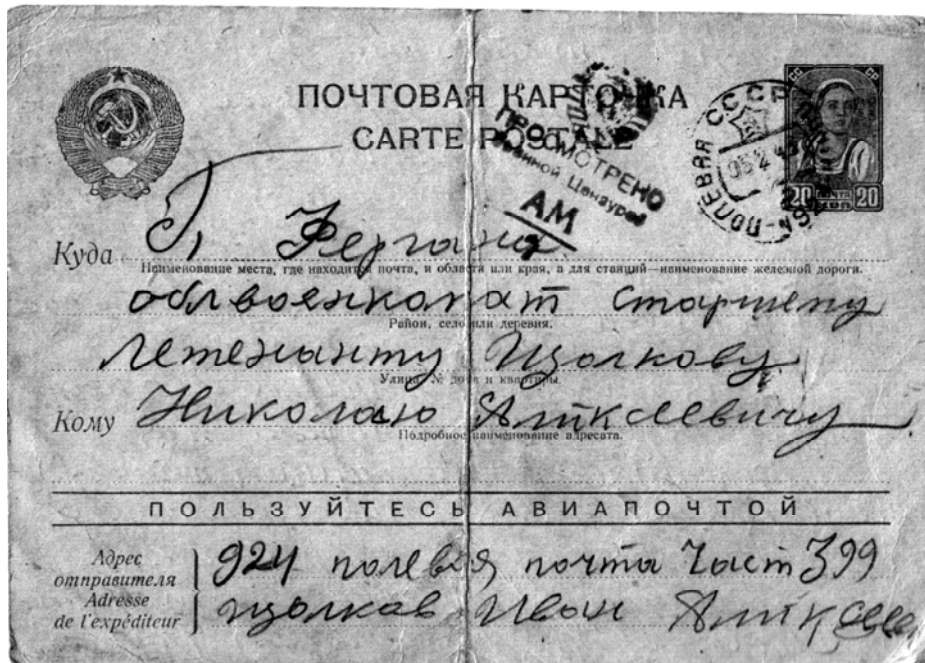 ПОЧТОВАЯ КАРТОЧКА
CARTE POSTALE
СССР
20 ПОЧТА 20
ПОЛЕВАЯ
ПРОСМОТРЕНО
Военной Цензурой
АМ
Куда Г. Фергана
Наименование места, где находится почта, и области или края, а для станций—наименование железной дороги.
облвоенкомат старшему
Район, село или деревня.
Летенанту Щолкову
Улица, № дома и квартиры.
Кому Николаю
Подробное наименование адресата.
ПОЛЬЗУЙТЕСЬ АВИАПОЧТОЙ
Адрес отправителя
Adresse de l'expéditeur
924 полевая почта Част 399
щолков Иван